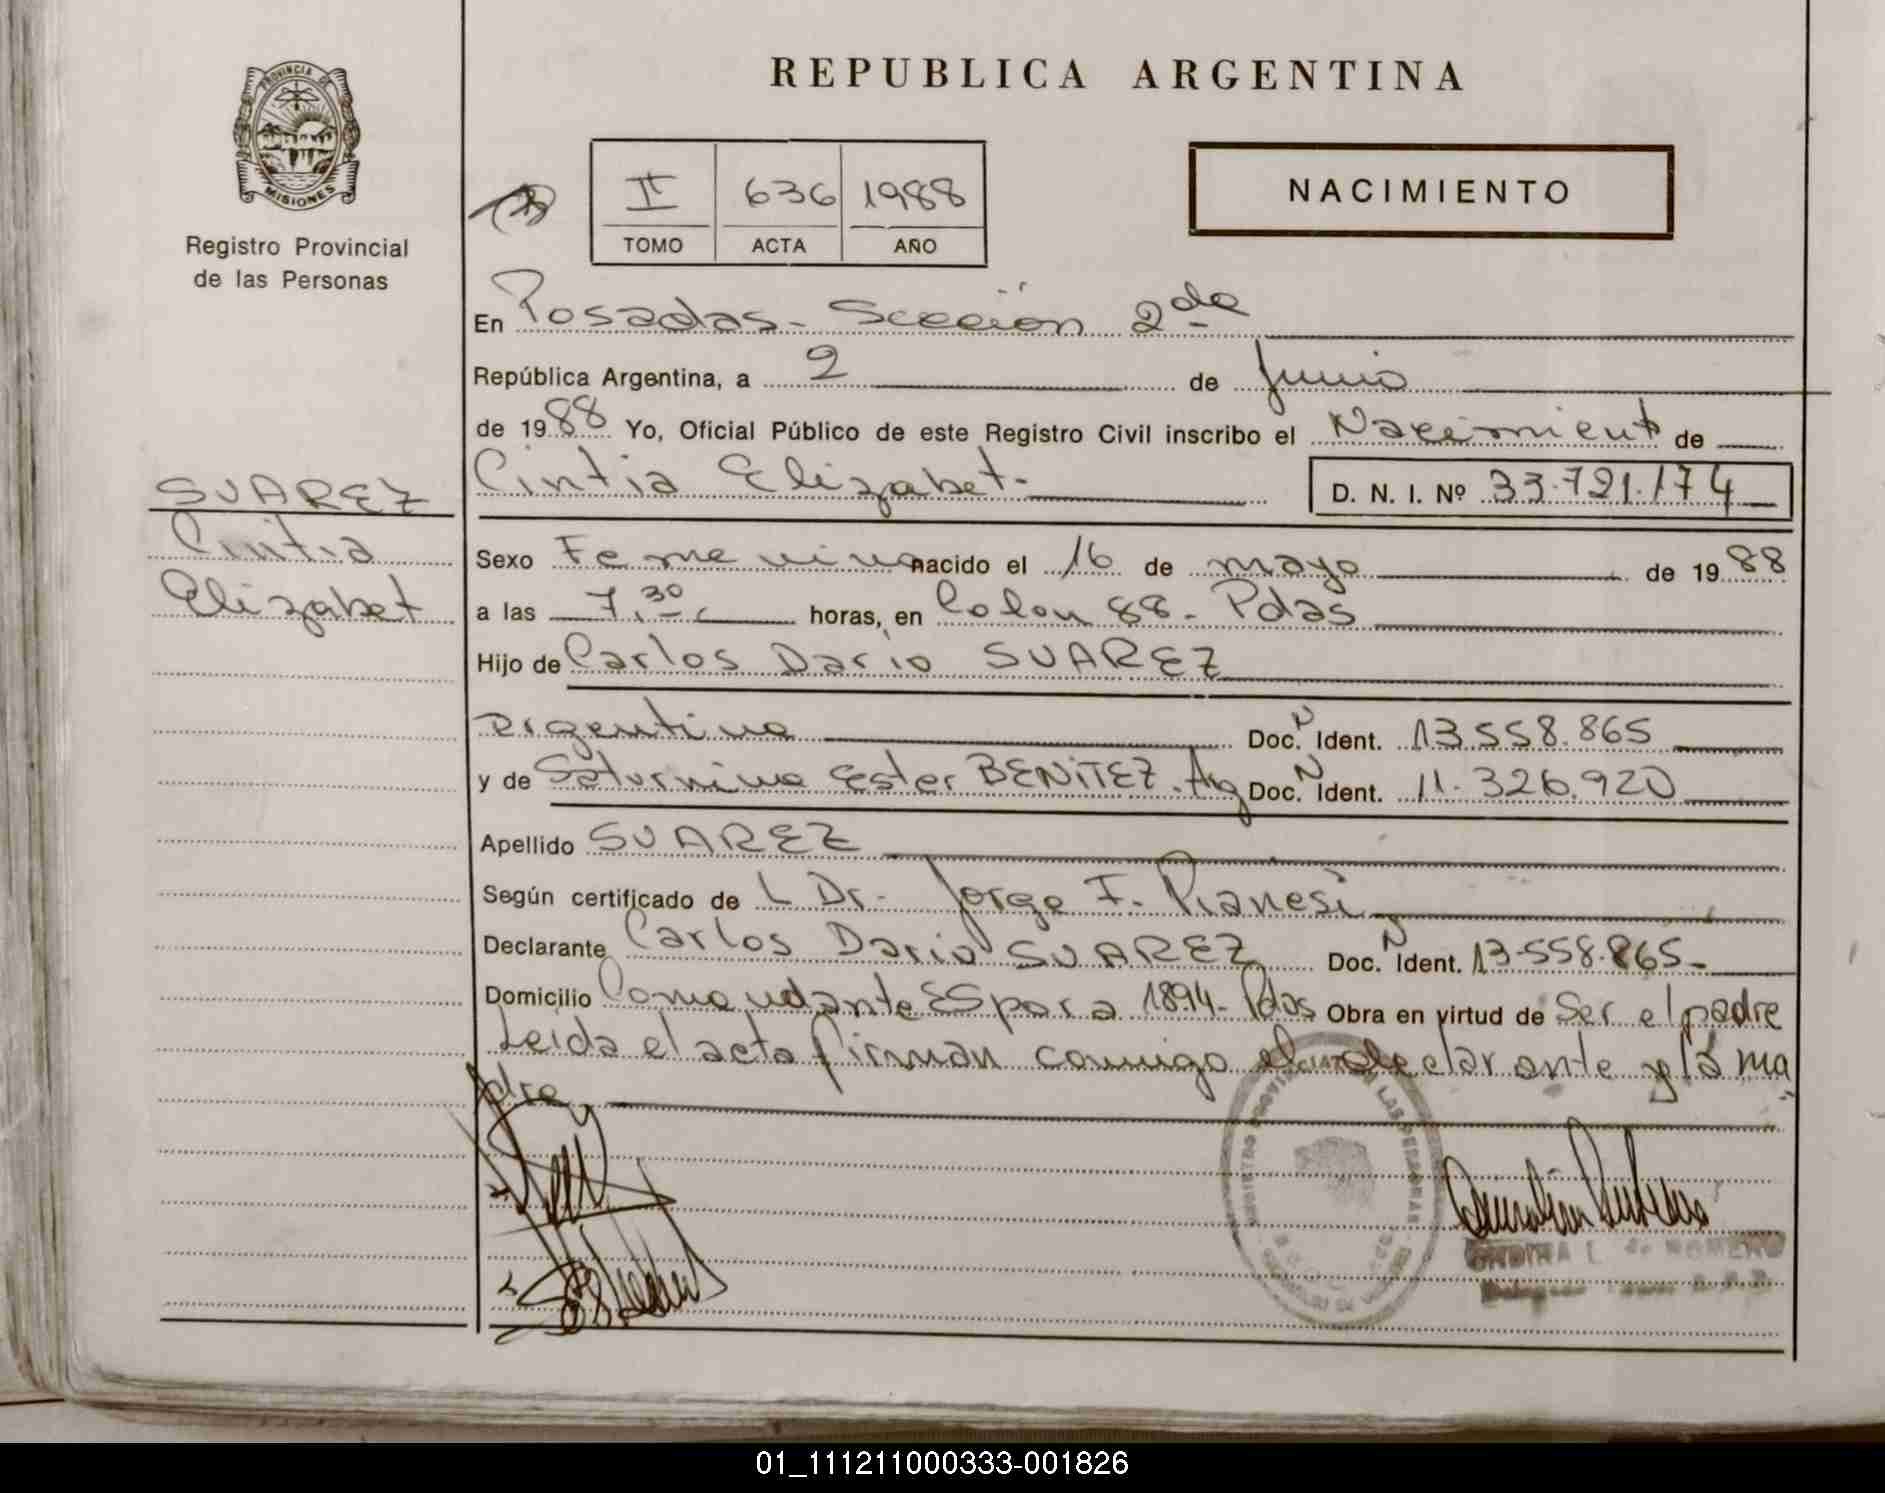 REPUBLICA ARGENTINA
PROVINCIA DE
MISIONES
Registro Provincial
de las Personas
II 636 1988
TOMO ACTA AÑO
NACIMIENTO
En Posadas - Sección 2da
República Argentina, a 2 de Junio
de 1988 Yo, Oficial Público de este Registro Civil inscribo el Nacimiento de
Cintia Elizabet - D. N. I. Nº 33.721.174
SUAREZ
Cintia
Elizabet
Sexo Femenino nacido el 16 de mayo de 1988
a las 7,30 horas, en Colon 88 - Pdas
Hijo de Carlos Dario SUAREZ
argentino Doc. N Ident. 13.558.865
y de Saturnina Ester BENITEZ. Ag Doc. N Ident. 11.326.920
Apellido SUAREZ
Según certificado de L Dr. Jorge F. Pianesi
Declarante Carlos Dario SUAREZ Doc. N Ident. 13.558.865-
Domicilio Comandante Espora 1894 - Pdas Obra en virtud de Ser el padre
Leida el acta firman conmigo el declarante y la ma
dre
ONDINA L. de ROMERO
01_111211000333-001826